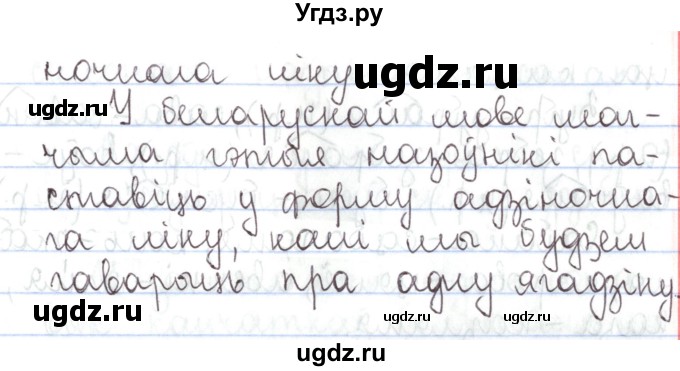 Угдз.ру
ночнага ліку
ugdz.ru
ugdz.ru
У беларускай мове маг-
чыма гэтыя назоўнікі па-
ставіць у форму адзіночна-
га ліку, калі мы будзем
гаварыць пра адну ягадзіну.
ugdz.ru ugdz.ru ugdz.ru
ugdz.ru